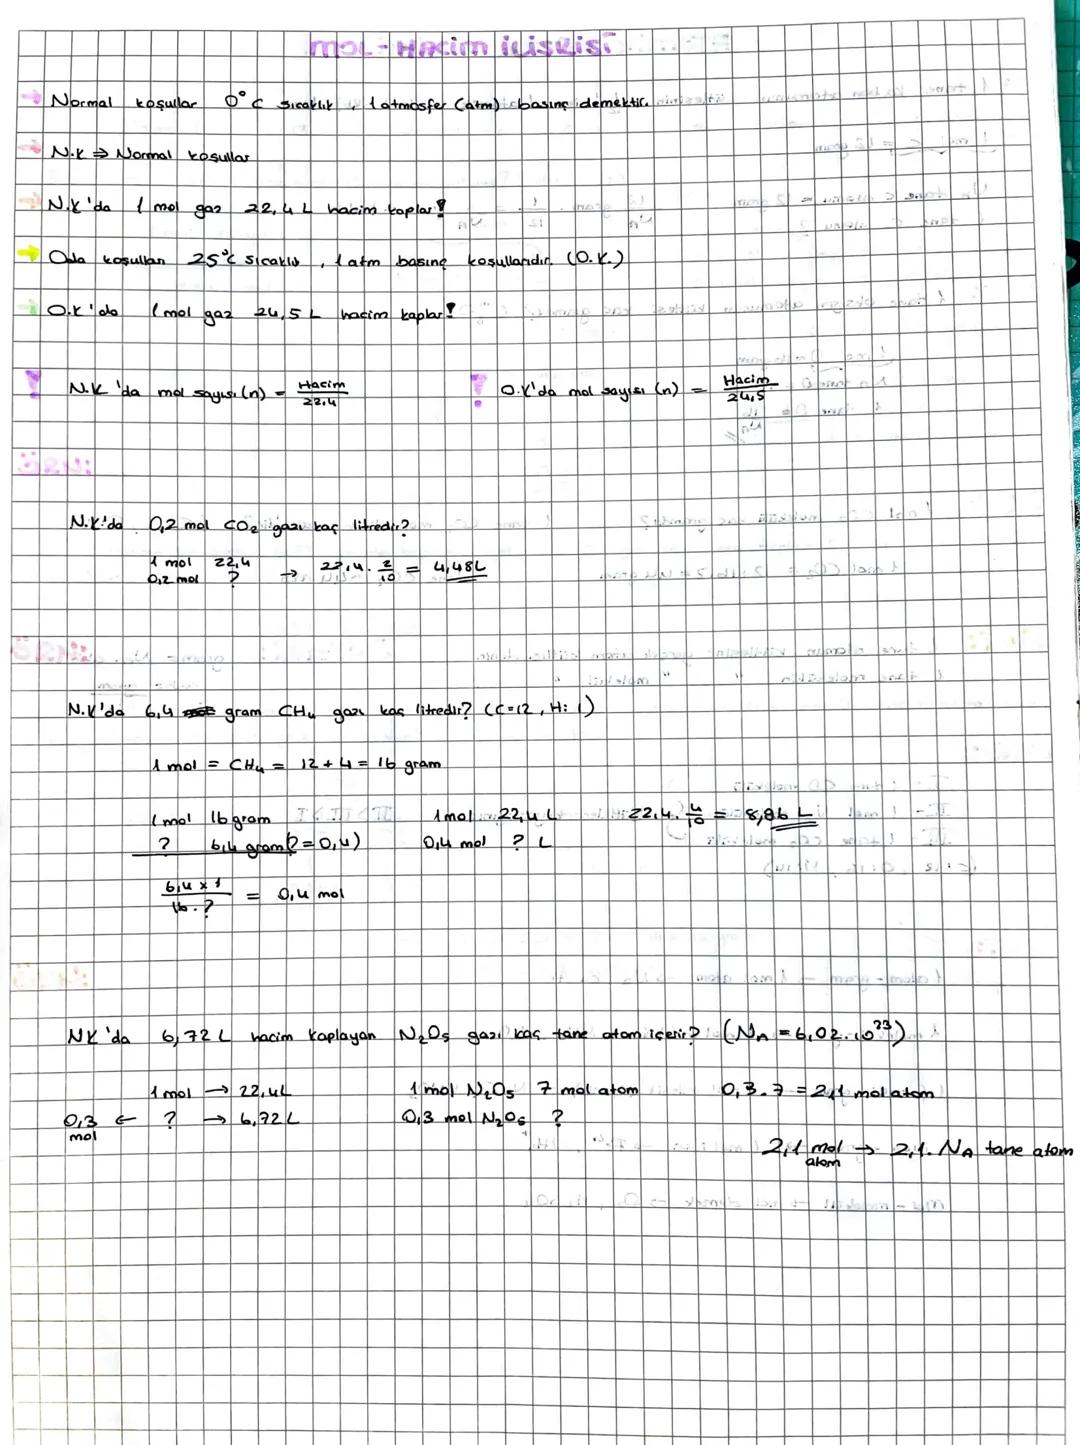 MOL-HACİM İLİŞKİSİ
Normal koşullar 0°C sıcaklık, 1 atmosfer (atm) basınç demektir.
N.K ⇒ Normal koşullar
N.K'da 1 mol gaz 22,4 L hacim kaplar!
Oda koşulları 25°C sıcaklık, 1 atm basınç koşullarıdır. (O.K.)
O.K'da 1 mol gaz 24,5 L hacim kaplar!
! N.K'da mol sayısı (n) = Hacim / 22,4 ! O.K'da mol sayısı (n) = Hacim / 24,5
N.K'da 0,2 mol CO₂ gazı kaç litredir?
1 mol 22,4
0,2 mol ? → 22,4 . 2/10 = 4,48L
N.K'da 6,4 gram CH₄ gazı kaç litredir? (C=12, H: 1)
1 mol = CH₄ = 12 + 4 = 16 gram
1 mol 16 gram 1 mol 22,4 L 22,4 . 4/10 = 8,96 L
? 6,4 gram (? = 0,4) 0,4 mol ? L
6,4 x 1 / 16 . ? = 0,4 mol
NK'da 6,72 L hacim kaplayan N₂O₅ gazı kaç tane atom içerir? (N_A = 6,02.10²³)
1 mol → 22,4L 1 mol N₂O₅ 7 mol atom 0,3 . 7 = 2,1 mol atom
0,3 mol ← ? → 6,72L 0,3 mol N₂O₅ ?
2,1 mol atom → 2,1 . N_A tane atom